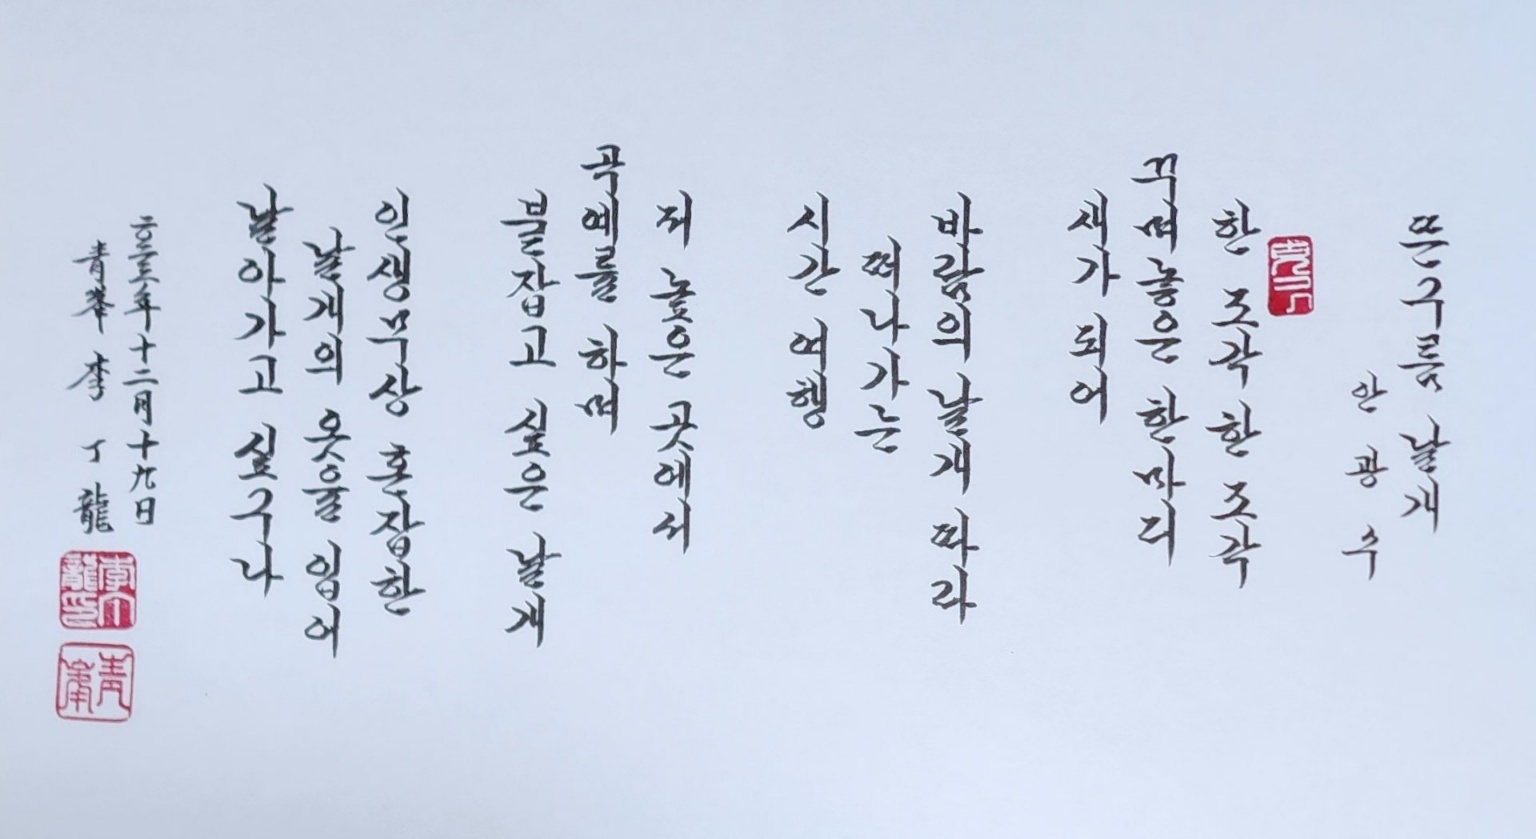 뜬구름 날개
안광수
한 조각 한 조각
꾸며놓은 한마리
새가 되어
바람의 날개 따라
떠나가는
시간 여행
저 높은 곳에서
곡예를 하며
붙잡고 싶은 날개
인생무상 혼잡한
날개의 옷을 입어
날아가고 싶구나
二〇二三年十二月十九日
青峯 李丁龍
李丁龍印
青峯